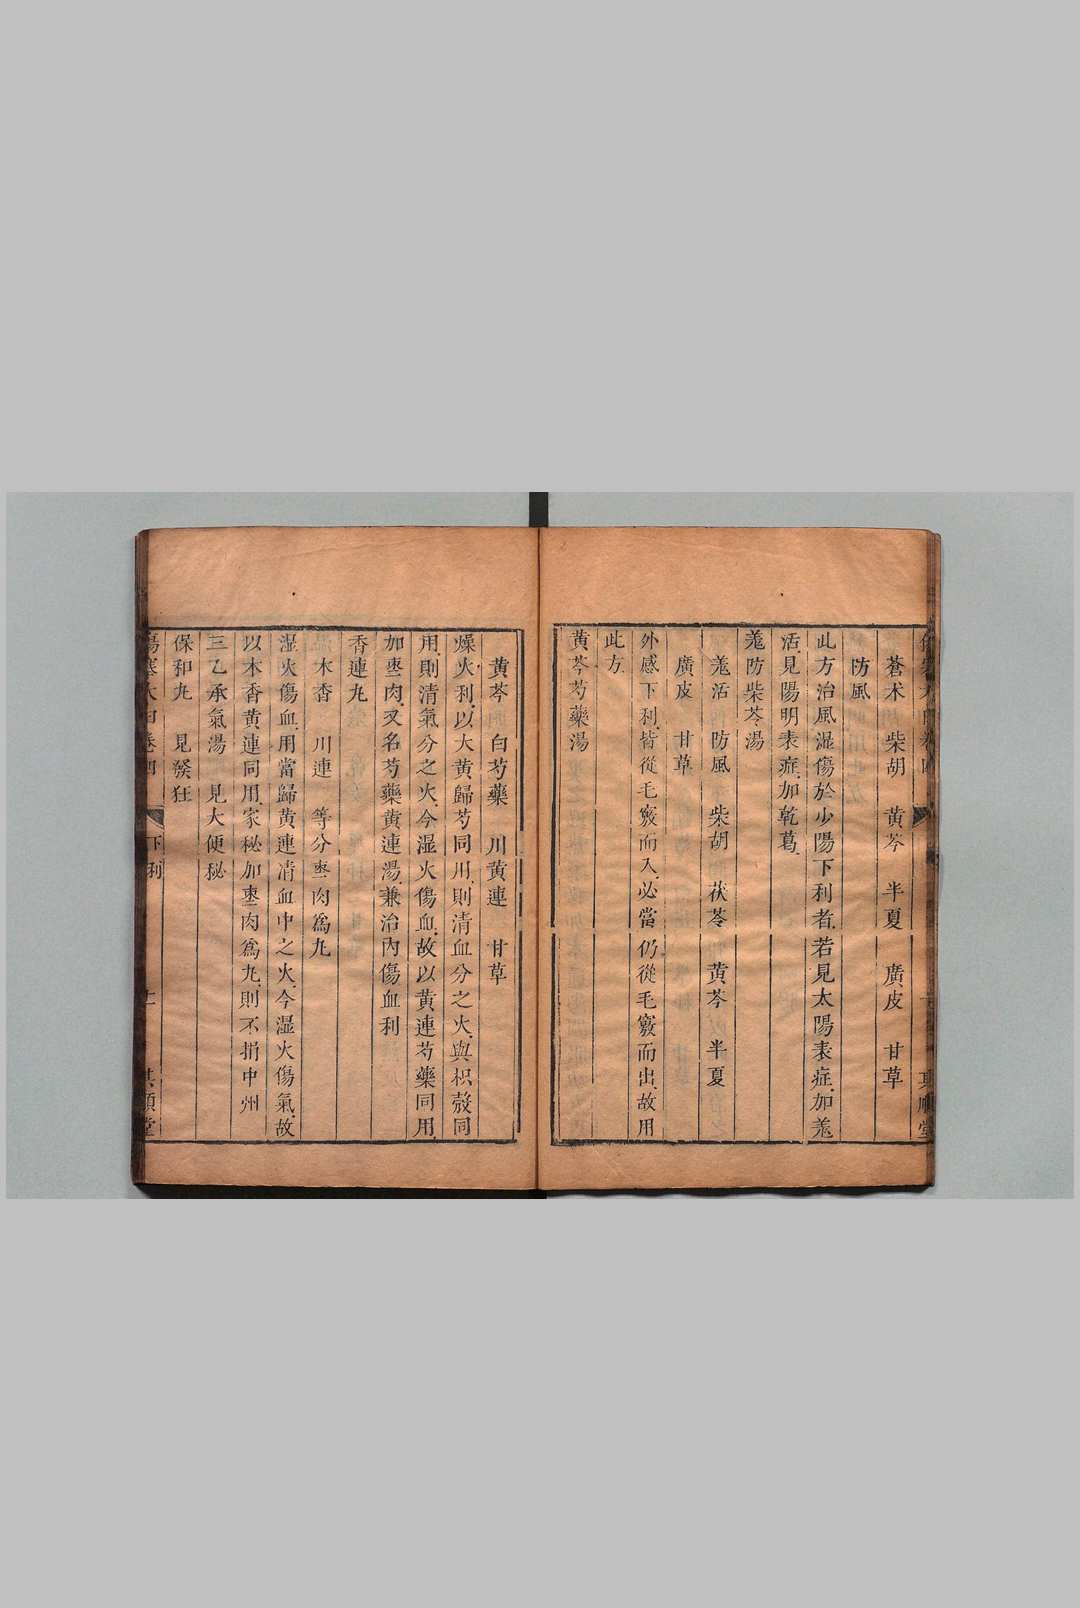 蒼术 柴胡 黄芩 半夏 廣皮 甘草
防風
此方治風湿傷於少陽下利者若見太陽表症加羗
活見陽明表症加乾葛
羗防柴苓湯
羗活 防風 柴胡 茯苓 黄芩 半夏
廣皮 甘草
外感下利皆從毛竅而入必當仍從毛竅而出故用
此方
黄芩芍藥湯
黄芩 白芍藥 川黄連 甘草
燥火利以大黄歸芍同用則清血分之火與枳殼同
用則清氣分之火今湿火傷血故以黄連芍藥同用
加枣肉又名芍藥黄連湯兼治內傷血利
香連丸
木香 川連 等分枣肉爲丸
湿火傷血用當歸黄連清血中之火今湿火傷氣故
以木香黄連同用家秘加枣肉爲丸則不損中州
三乙承氣湯 見大便秘
保和丸 見發狂
傷寒大白卷四 下利 其順堂